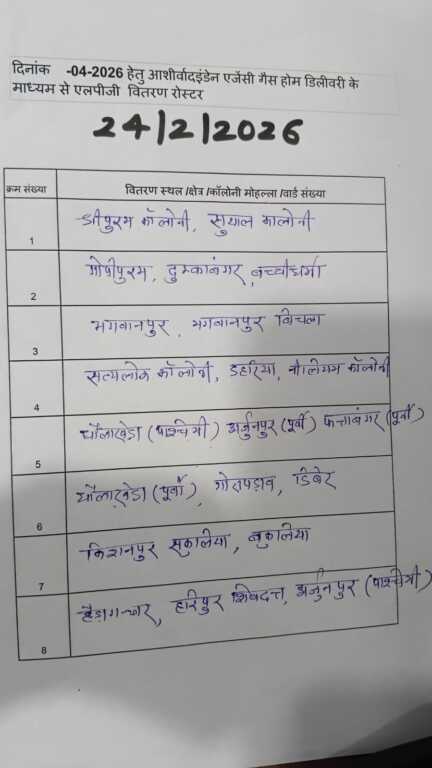 दिनांक -04-2026 हेतु आशीर्वादइंडेन एजेंसी गैस होम डिलीवरी के
माध्यम से एलपीजी वितरण रोस्टर
24/2/2026
क्रम संख्या वितरण स्थल /क्षेत्र /कॉलोनी मोहल्ला /वार्ड संख्या
1 श्रीपुरम कॉलोनी, सुयाल कालोनी
2 गोपीपुरम, दुम्काबंगर, बच्चीधर्मा
3 भगवानपुर, भगवानपुर विचला
4 सत्यलोक कॉलोनी, डहरिया, कॉलोनी
5 धौलाखेडा (पाश्चिमी) अर्जुनपुर (पूर्वी) फत्ताबंगर (पूर्वी)
6 धौलाखेडा (पूर्वी), गोरापडाव, डिबेर
7 किशनपुर सकुलिया, लकुलिया
8 हैडागज्जर, हरिपुर शिवदत्त, अर्जुनपुर (पाश्चिमी)